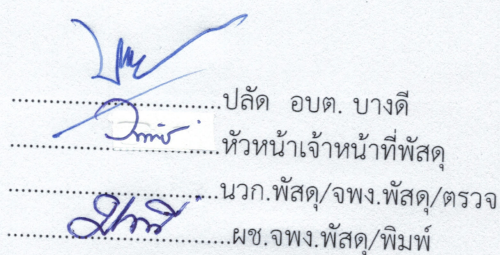 ..............................ปลัด อบต. บางดี
..............................หัวหน้าเจ้าหน้าที่พัสดุ
..............................นวก.พัสดุ/จพง.พัสดุ/ตรวจ
..............................ผช.จพง.พัสดุ/พิมพ์